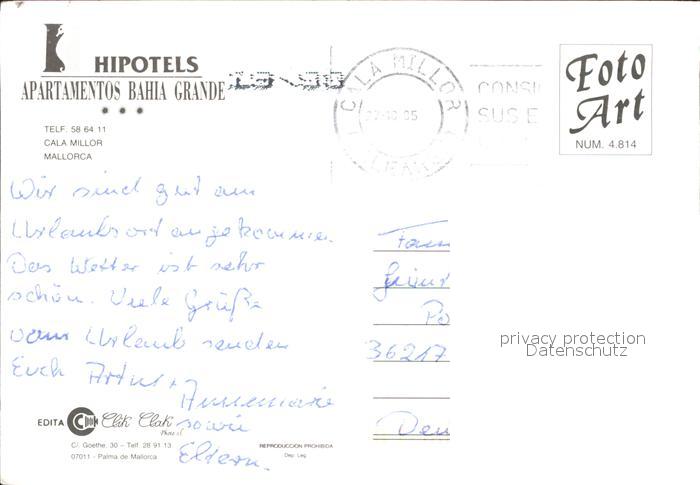 HIPOTELS
APARTAMENTOS BAHIA GRANDE
TELF. 58 64 11
CALA MILLOR
MALLORCA
CALA MILLOR
CONSI
SUS E
Foto
Art
NUM. 4.814
Wir sind gut am
Urlaubsort angekommen.
Das Wetter ist sehr
schön. Viele Grüße
vom Urlaub senden
Euch Artur + Annemarie
sowie
Eltern.
Fam
Po
36217
Deu
privacy protection
Datenschutz
EDITA Clik Clak
C/. Goethe, 30 – Telf. 28 91 13
07011 - Palma de Mallorca
REPRODUCCION PROHIBIDA
Dep. Leg.